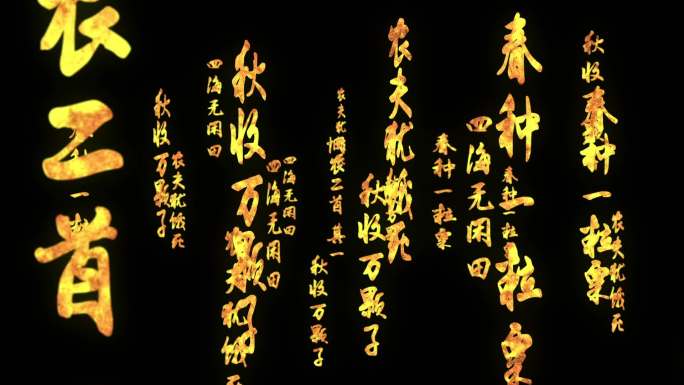 农二首
秋收万颗子
农夫犹饿死
四海无闲田
秋收万颗子
农夫犹饿死
四海无闲田
四海无闲田
秋收万颗子
农夫犹
悯农二首其一
秋收万颗子
农夫犹饿死
春种一粒粟
四海无闲田
春种一粒粟
春种一粒
秋收
春种一粒粟
农夫犹饿死